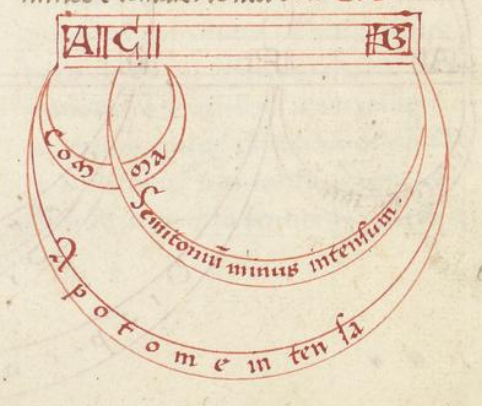 A C B
Comma
Semitoniū minus intensum.
Apotome intensa